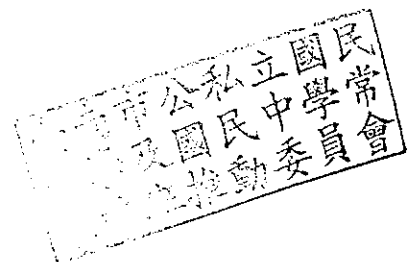 市公私立國民
及國民中學常
推動委員會